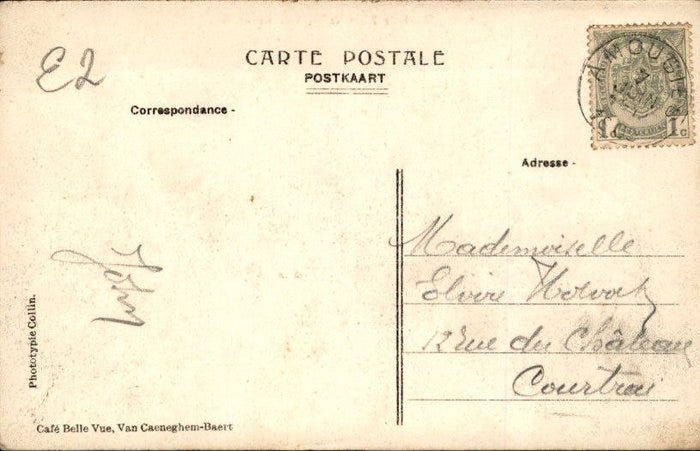 E2
CARTE POSTALE
POSTKAART
Correspondance -
AMOUGIES
1c 1c
Adresse -
Mademoiselle
Elvire
12 rue du Château
Courtrai
Phototypie Collin.
Café Belle Vue, Van Caeneghem-Baert